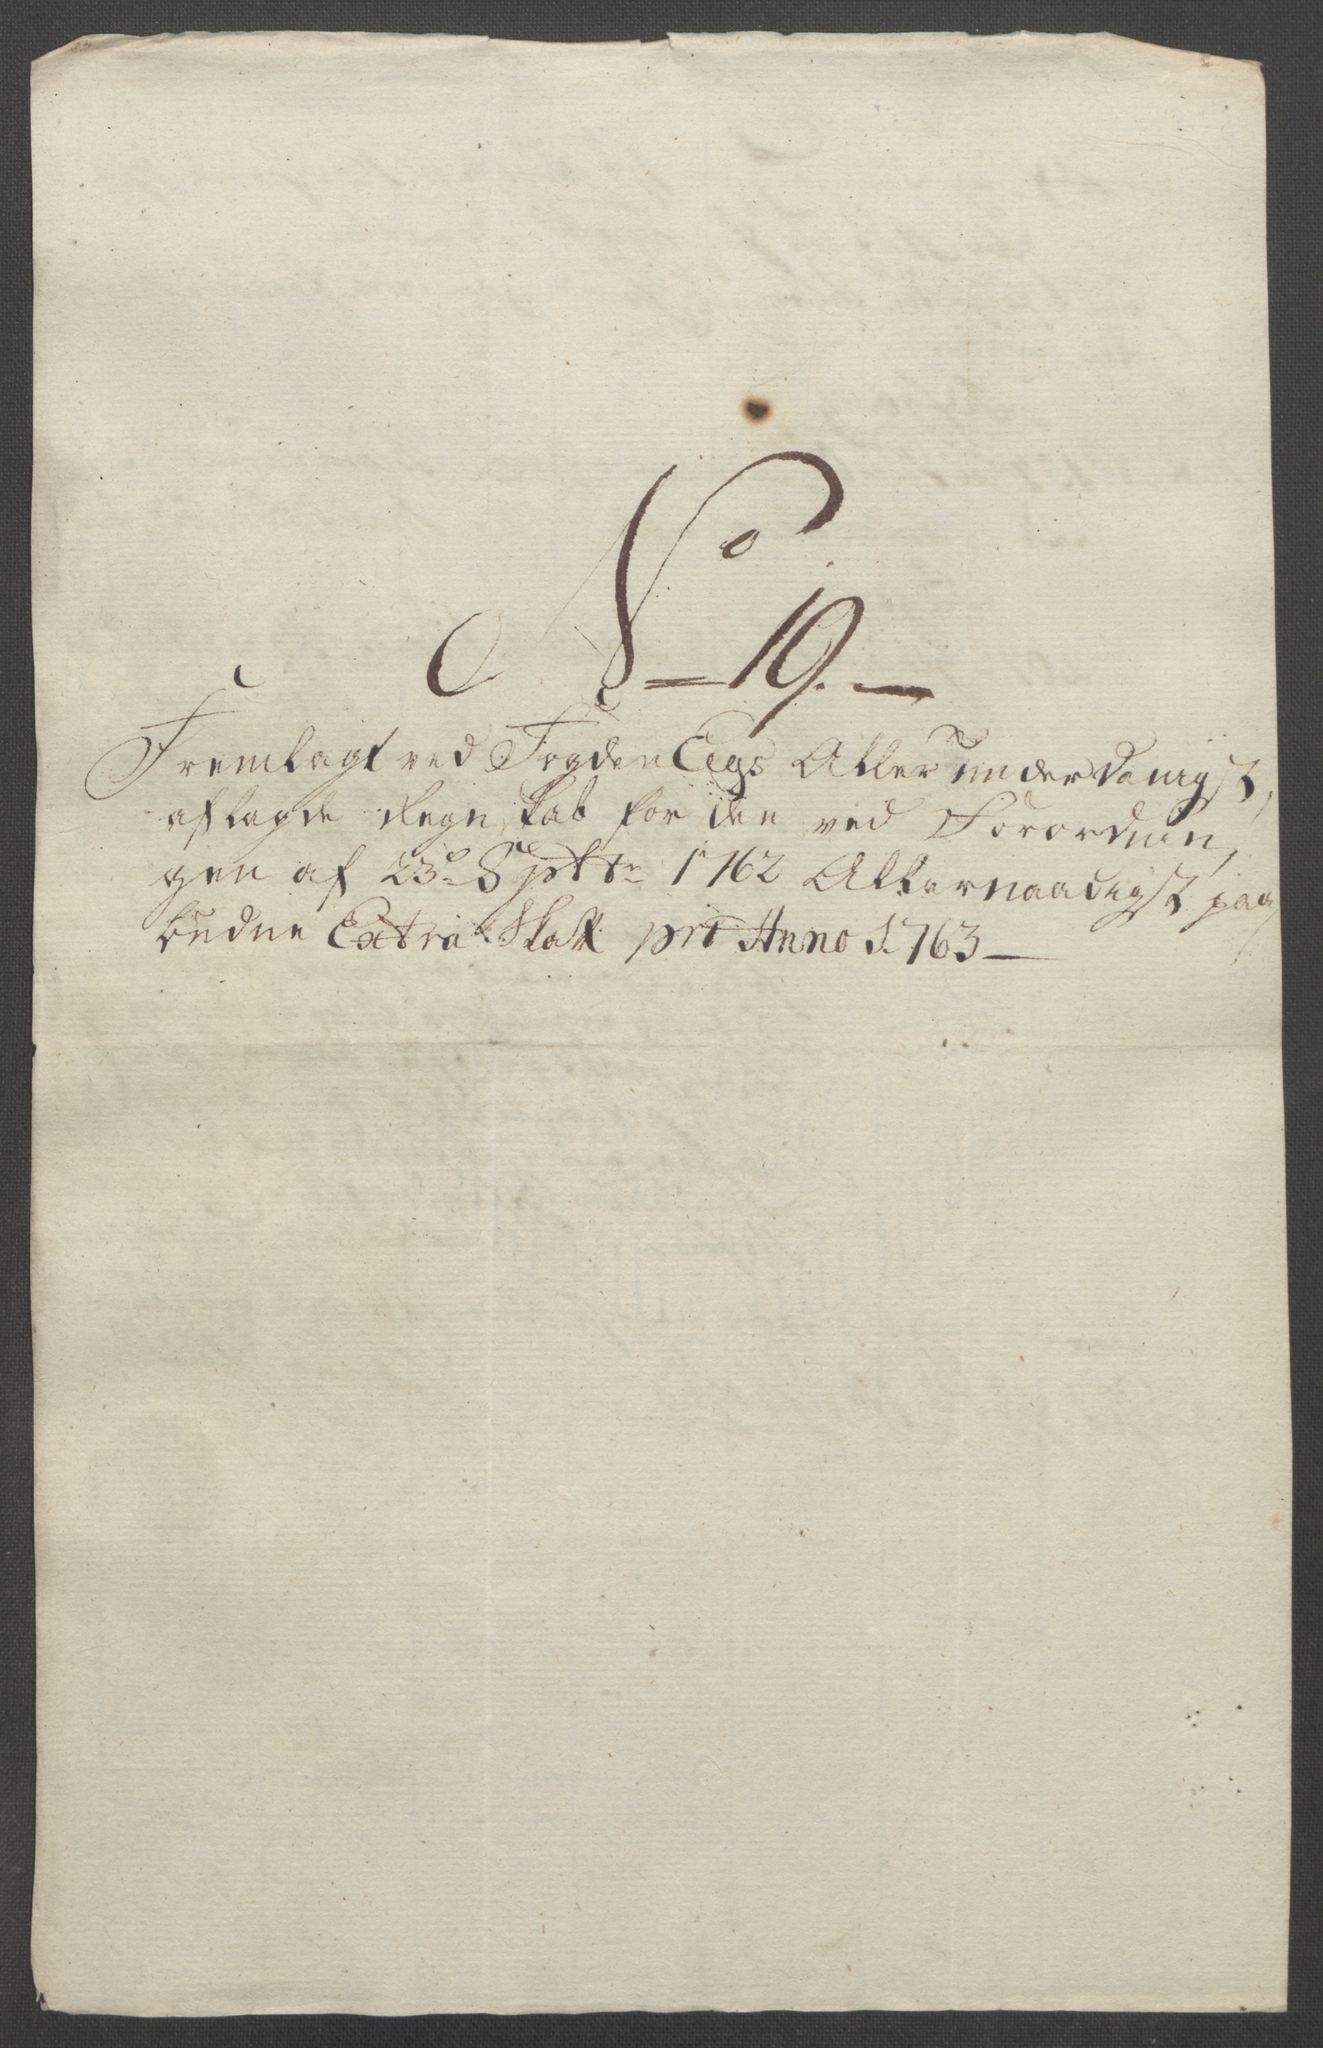 No 19.
Fremlagt ved Fogden Eegs Aller underdanigst
aflagde Regnskab for den ved Forordnin,
gen af 23de Septbr 1762 Allernaadigst paa,
budne Extra Skatt pro Anno 1763